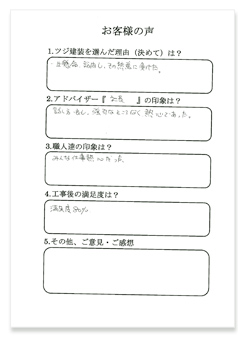 お客様の声
1.ツジ建装を選んだ理由（決めて）は？
その熱意に負けた。
2.アドバイザー『　　』の印象は？
話し易いし、強引なところなく熱心であった。
3.職人達の印象は？
みんな仕事熱心だった
4.工事後の満足度は？
満足度80%
5.その他、ご意見・ご感想